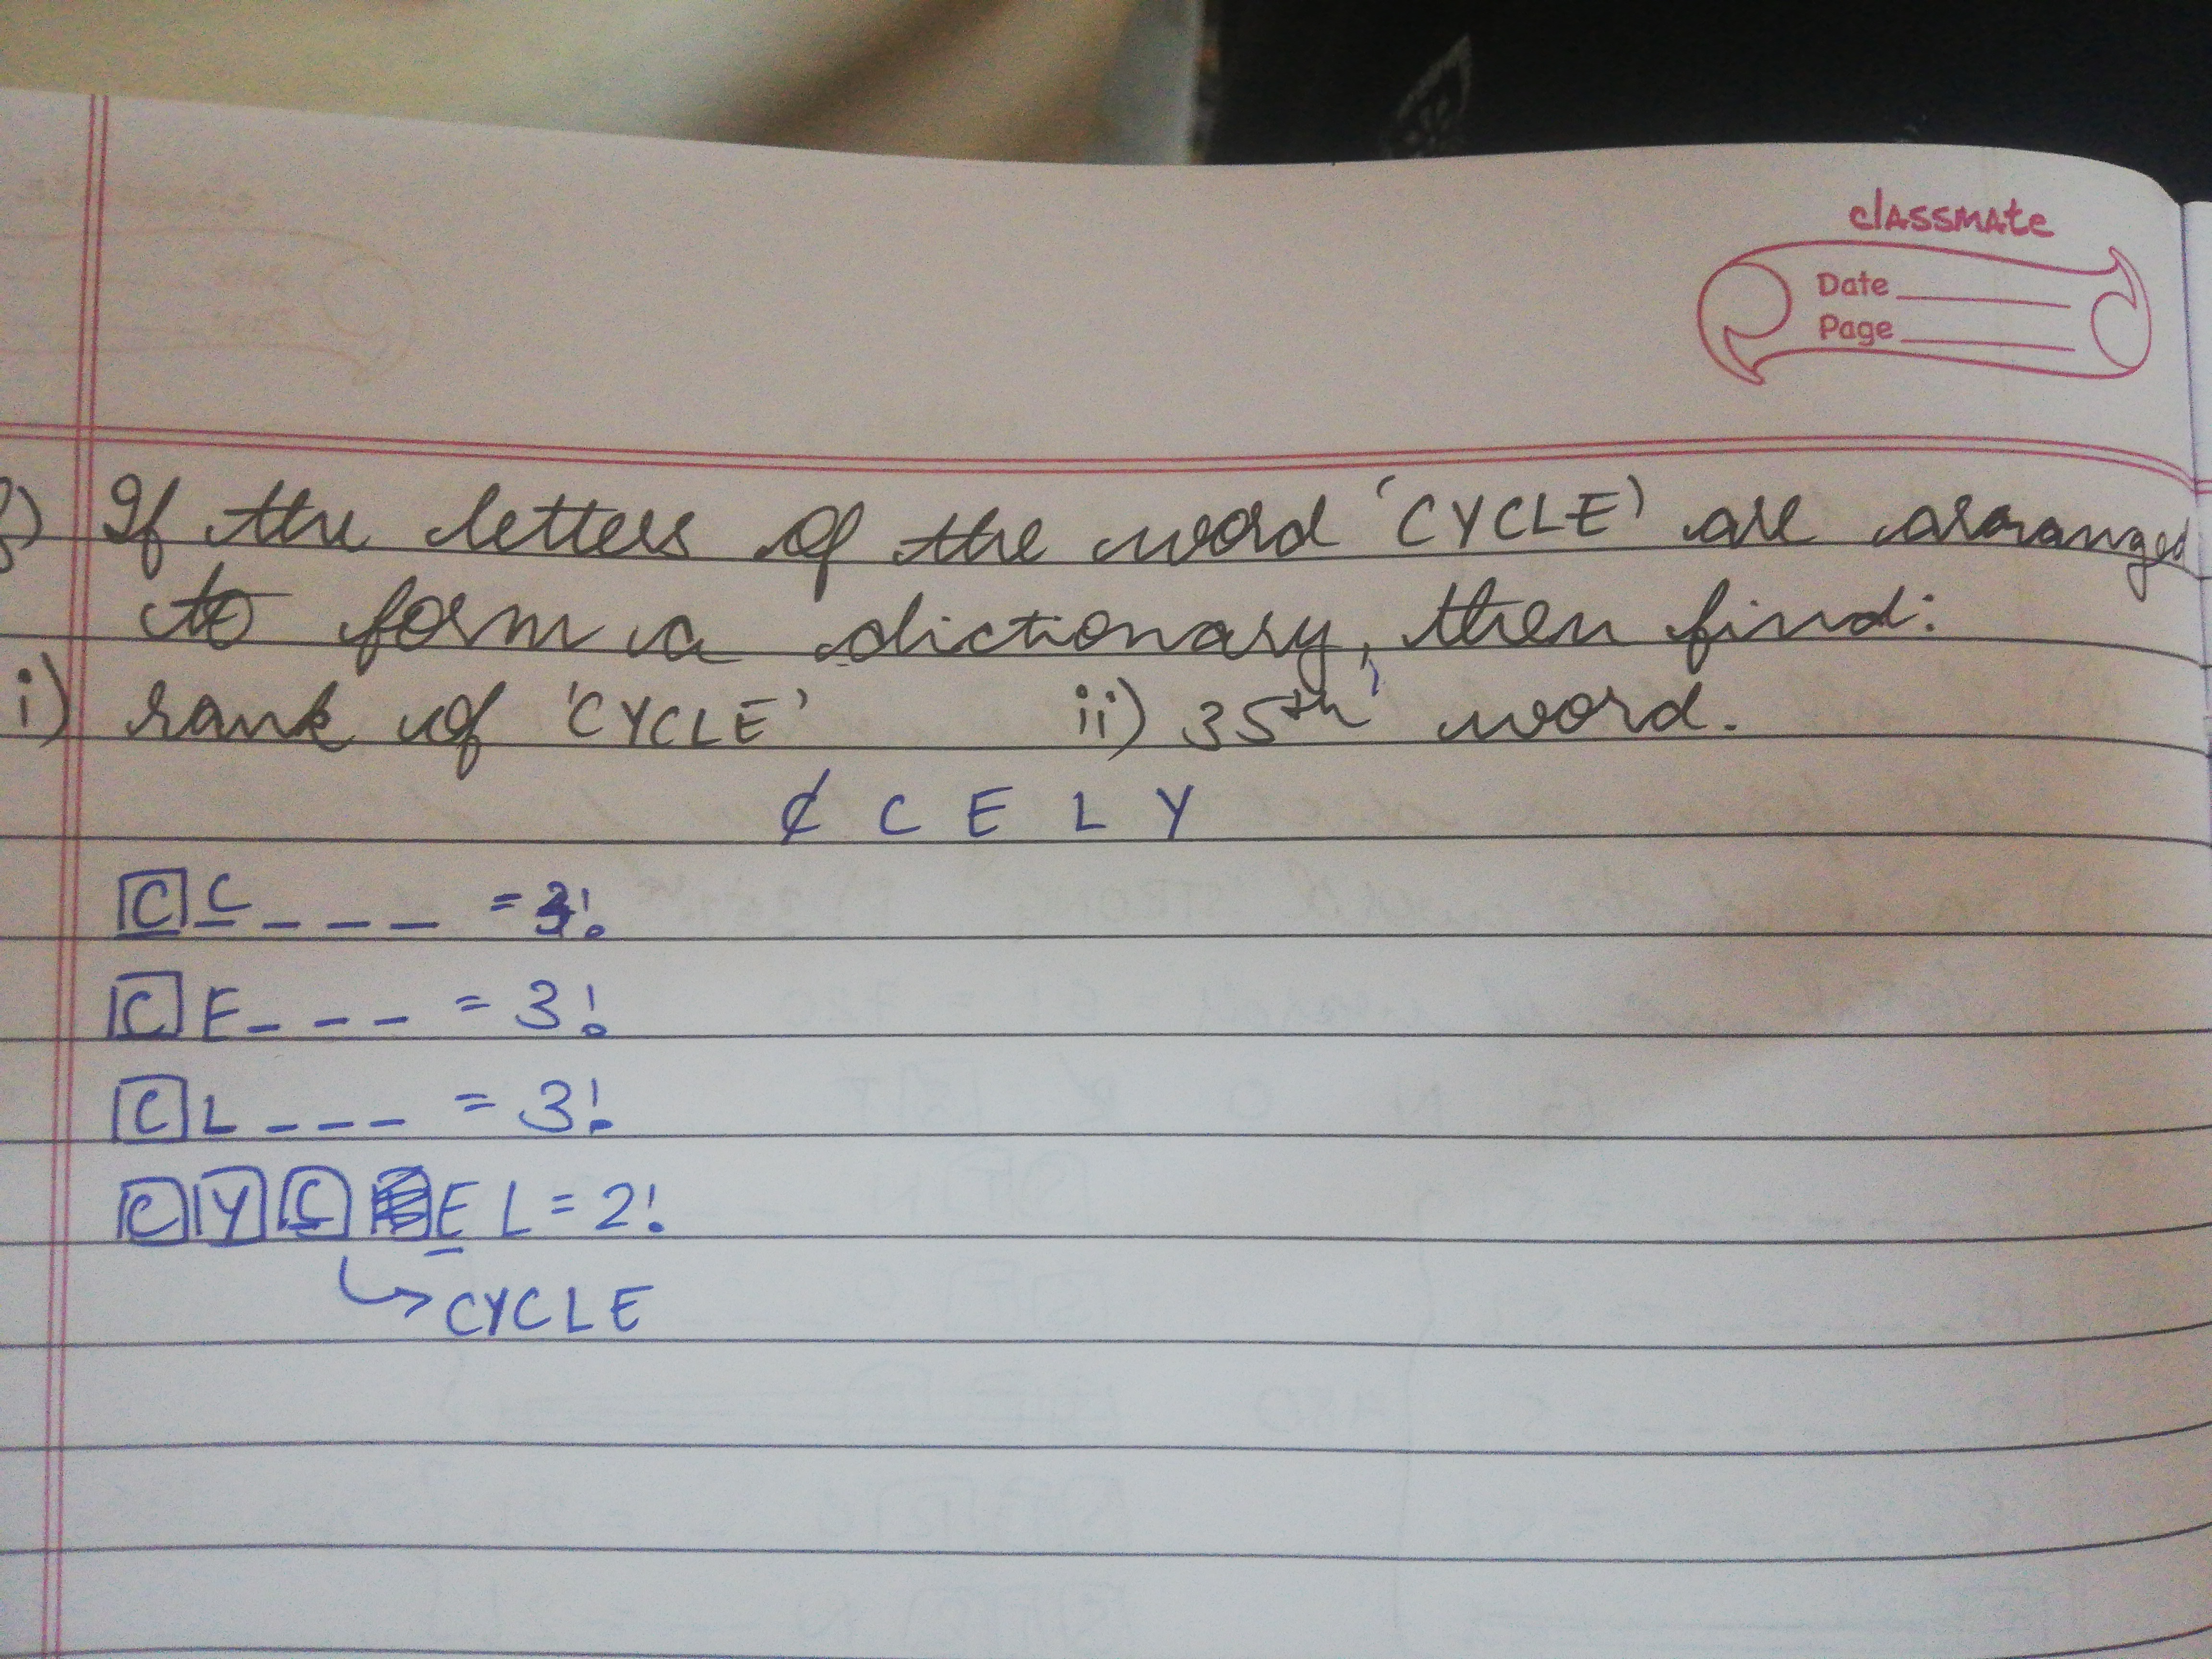 classmate
Date
Page
If the letters of the word 'CYCLE' are arranged
to form a dictionary, then find:
i) rank of 'CYCLE' ii) 35th word.
C C E L Y
C C _ _ _ = 3!
C E _ _ _ = 3!
C L _ _ _ = 3!
C Y C E L = 2!
↳ CYCLE